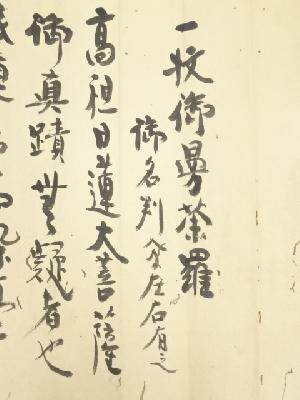 一枚御曼荼羅
御名判 左右有之
高祖日蓮大菩薩
御真蹟無疑者也